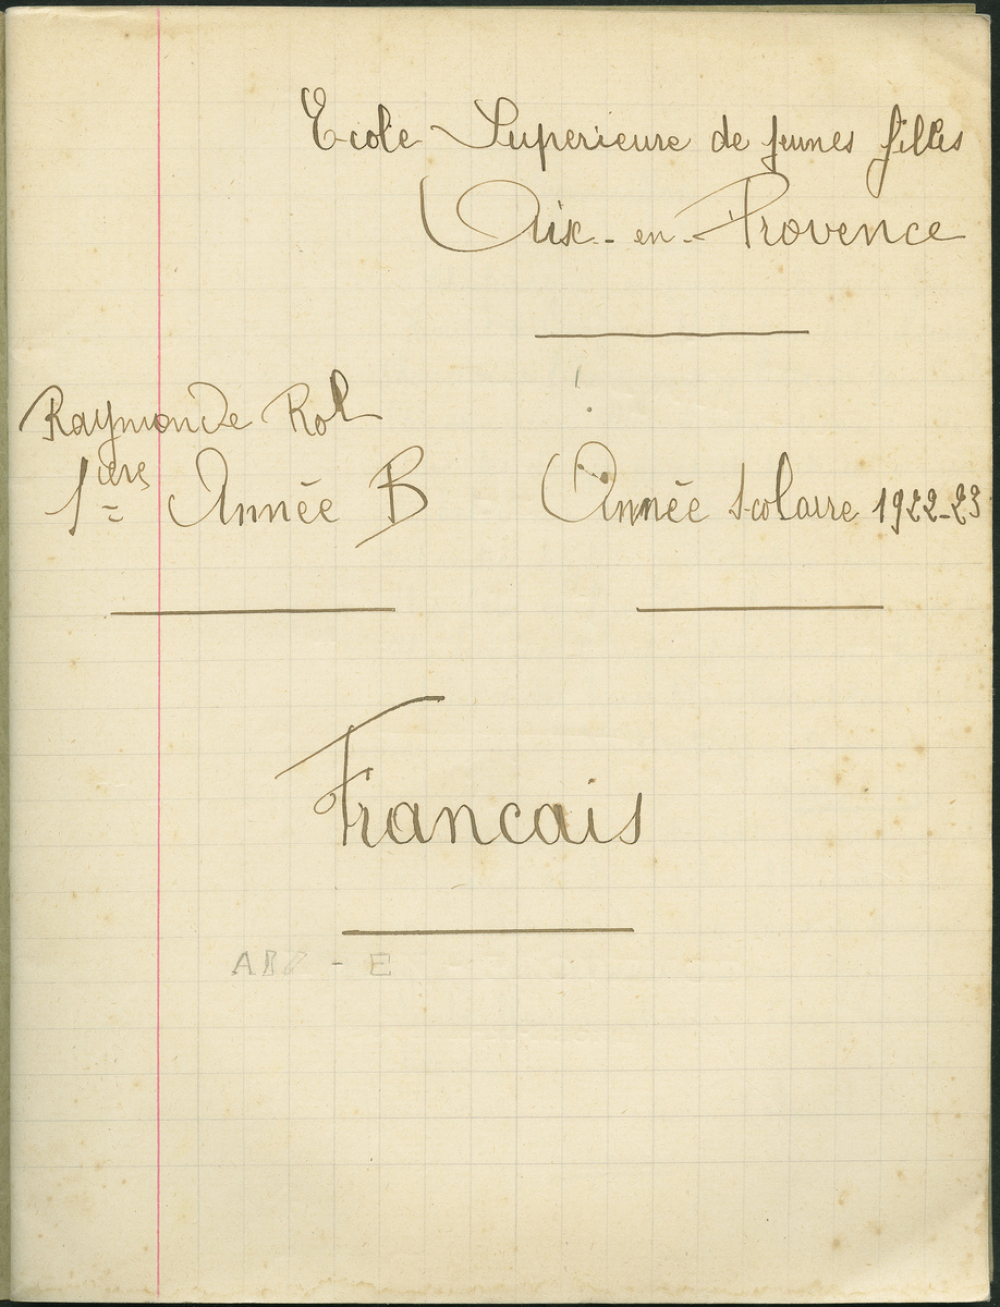 Ecole Superieure de jeunes filles
Aix-en-Provence
Raymonde Rol
1ère Année B
Année scolaire 1922-23
Francais